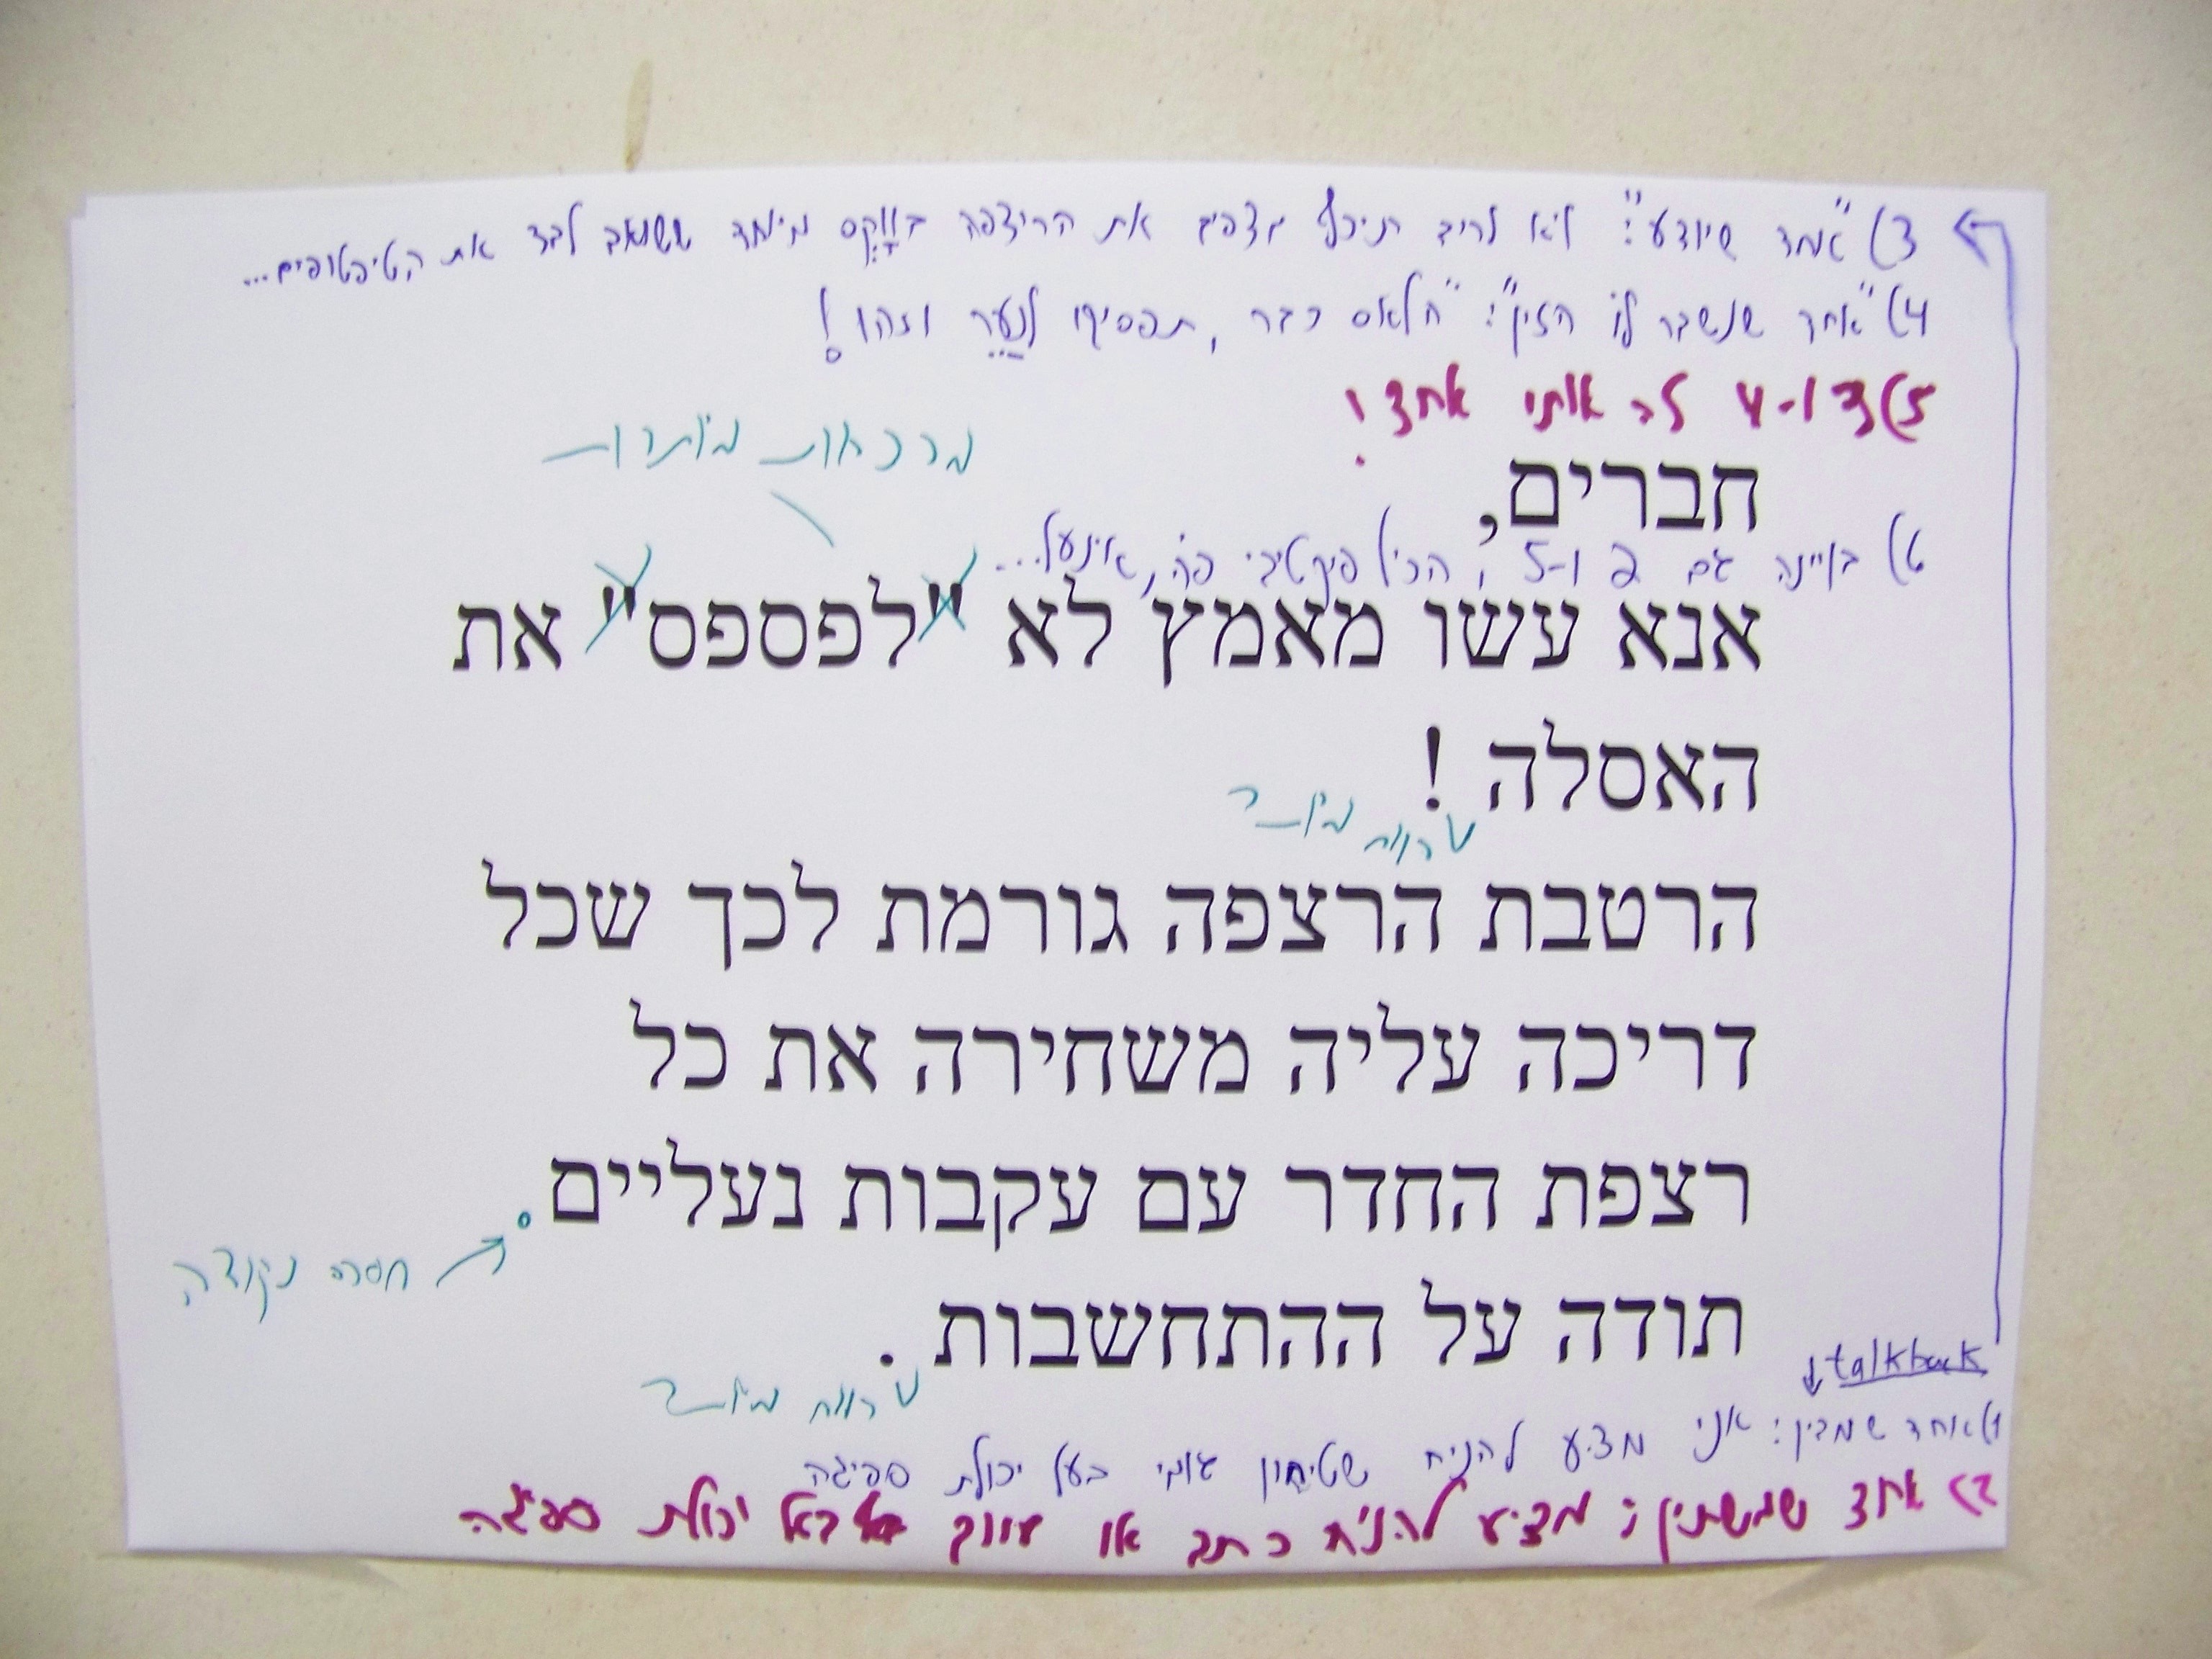 3) "אחד שיודע": לא לריב תיכף מצפים את הריצפה בווקס מיוחד ששואב לבד את הטיפטופים...
4) "אחד שנשבר לו הזין": "חלאס כבר, תפסיקו לנער וזהו!
5) 3 ו-4 זה אותו אחד!
מרכאות מיותרות
חברים,
6) בעיינה גם 2 ו-5, הכל פיקטיבי פה,
אנא עשו מאמץ לא "לפספס" את
האסלה !
רווח מיותר
הרטבת הרצפה גורמת לכך שכל
דריכה עליה משחירה את כל
רצפת החדר עם עקבות נעליים.
חסרה נקודה
תודה על ההתחשבות .
רווח מיותר
talkback
1) אחד שמבין: אני מציע להניח שטיחון עובי בעל יכולת ספיגה
2) אחד שמשתין: מציע להניח כתב או בעל יכולת ספיגה